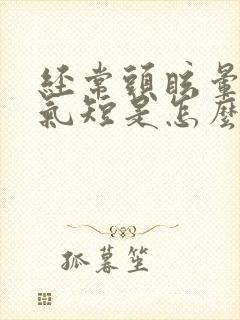 經常頭眩暈
氣短是怎麼
孤暮笙